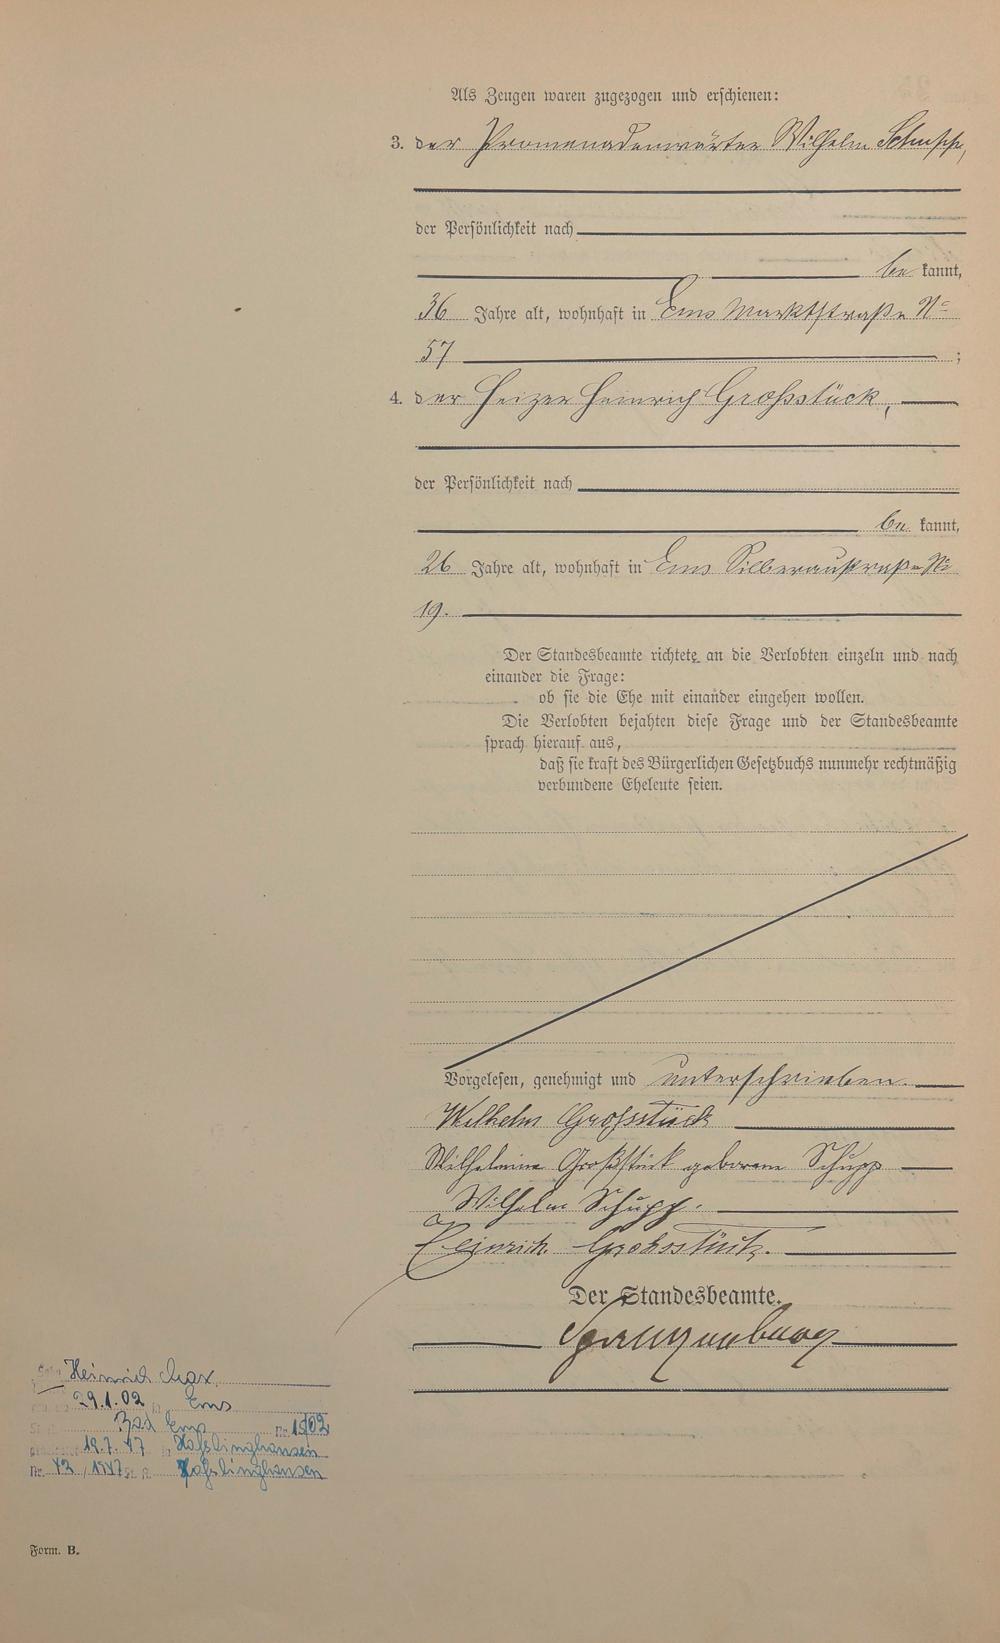 Als Zeugen waren zugezogen und erschienen:
3. der Promenadenwärter Wilhelm Schupp,
der Persönlichkeit nach
be kannt,
36 Jahre alt, wohnhaft in Ems Marktstraße No
57 ;
4. der Heizer Heinrich Großstück,
der Persönlichkeit nach
be kannt,
26 Jahre alt, wohnhaft in Ems Silberaustraße No
19.
Der Standesbeamte richtete an die Verlobten einzeln und nach
einander die Frage:
ob sie die Ehe mit einander eingehen wollen.
Die Verlobten bejahten diese Frage und der Standesbeamte
sprach hierauf aus,
daß sie kraft des Bürgerlichen Gesetzbuchs nunmehr rechtmäßig
verbundene Eheleute seien.
Vorgelesen, genehmigt und unterschrieben.
Wilhelm Grossstück
Wilhelmine Großstück geborene Schupp
Wilhelm Schupp.
Heinrich Grohsstück.
Der Standesbeamte.
Heinrich Max
29.1.02 in Ems
Bad Ems Nr. 15/02
19.7.47 in Haßlinghausen
Nr. 42/1947 St. A. Haßlinghausen
Form. B.